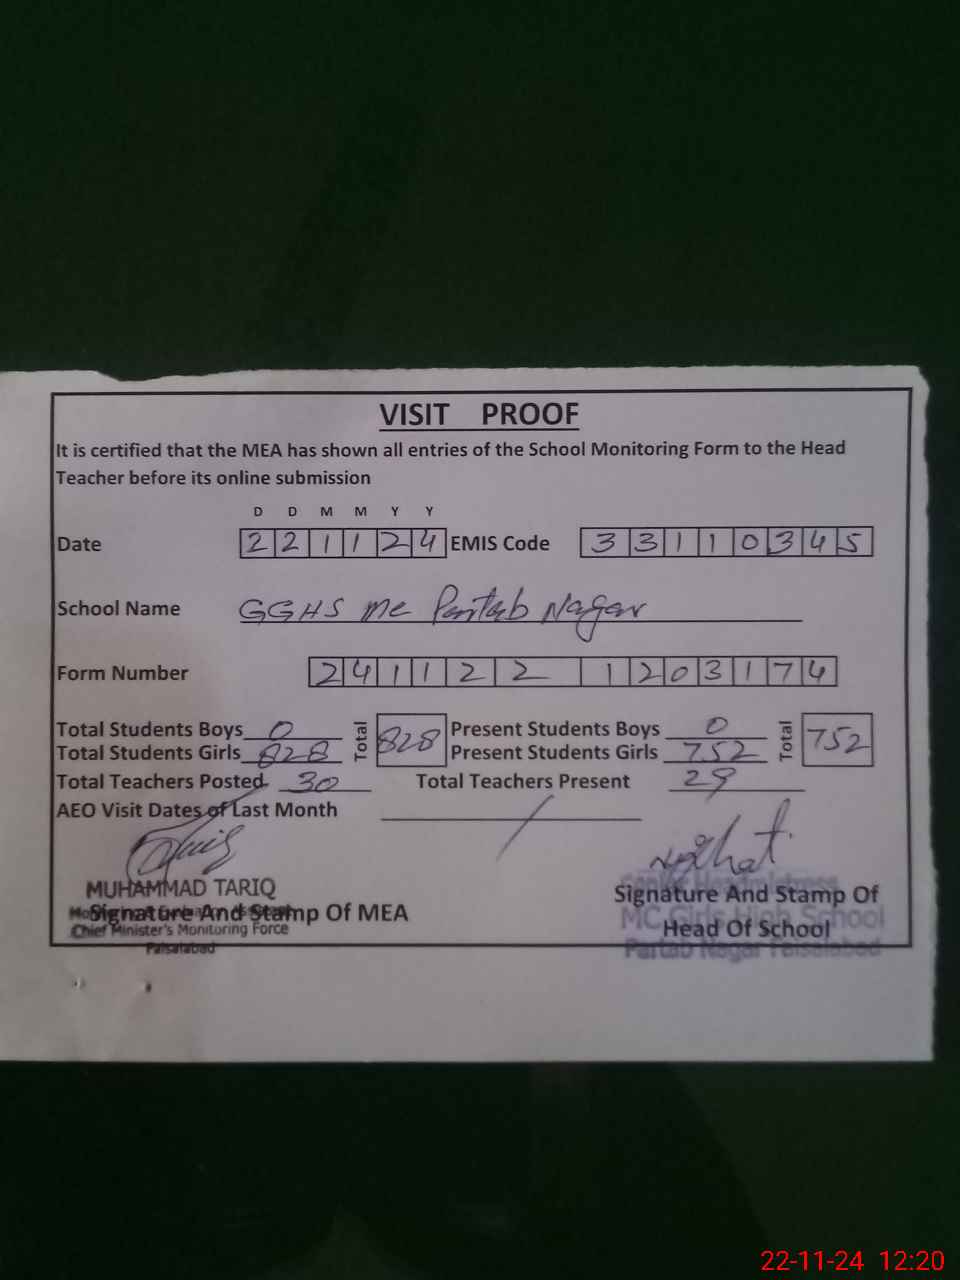 VISIT PROOF
It is certified that the MEA has shown all entries of the School Monitoring Form to the Head
Teacher before its online submission
D D M M Y Y
Date 2 2 1 1 2 4 EMIS Code 3 3 1 1 0 3 4 5
School Name GGHS MC Partab Nagar
Form Number 2 4 1 1 2 2 1 2 0 3 1 7 4
Total Students Boys 0 Total 828 Present Students Boys 0 Total 752
Total Students Girls 828 Present Students Girls 752
Total Teachers Posted 30 Total Teachers Present 29
AEO Visit Dates of Last Month /
MUHAMMAD TARIQ
Signature And Stamp Of MEA
Chief Minister's Monitoring Force
Faisalabad
Signature And Stamp Of
MC Girls High School
Head Of School
Partab Nagar Faisalabad
22-11-24 12:20